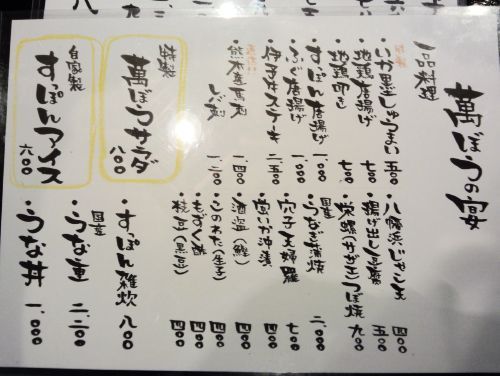 萬ぼうの何安
一品料理
・いか墨しゅうまい 五〇〇
・地鶏唐揚げ 七〇〇
・地鶏叩き 七〇〇
・すっぽん唐揚げ 一、〇〇〇
・ふぐ唐揚げ 一、〇〇〇
・伊予牛ステーキ 二、五〇〇
・熊本産馬刺 一、四〇〇
レバ刺 一、二〇〇
・八幡浜じゃこ天 四〇〇
・揚げ出し豆腐 五〇〇
・栄螺(さざえ)つぼ焼 九〇〇
国産
・うなぎ蒲焼 二、〇〇〇
・穴子天婦羅 七〇〇
・いか沖漬 四〇〇
・酒盗(鰹) 四〇〇
・このわた(生子) 四〇〇
・もずく酢 四〇〇
・枝豆(黒豆) 四〇〇
特製
萬ぼうサラダ 八〇〇
自家製
すっぽんアイス 六〇〇
・すっぽん雑炊 八〇〇
国産
・うな重 二、二〇〇
・うな丼 一、〇〇〇